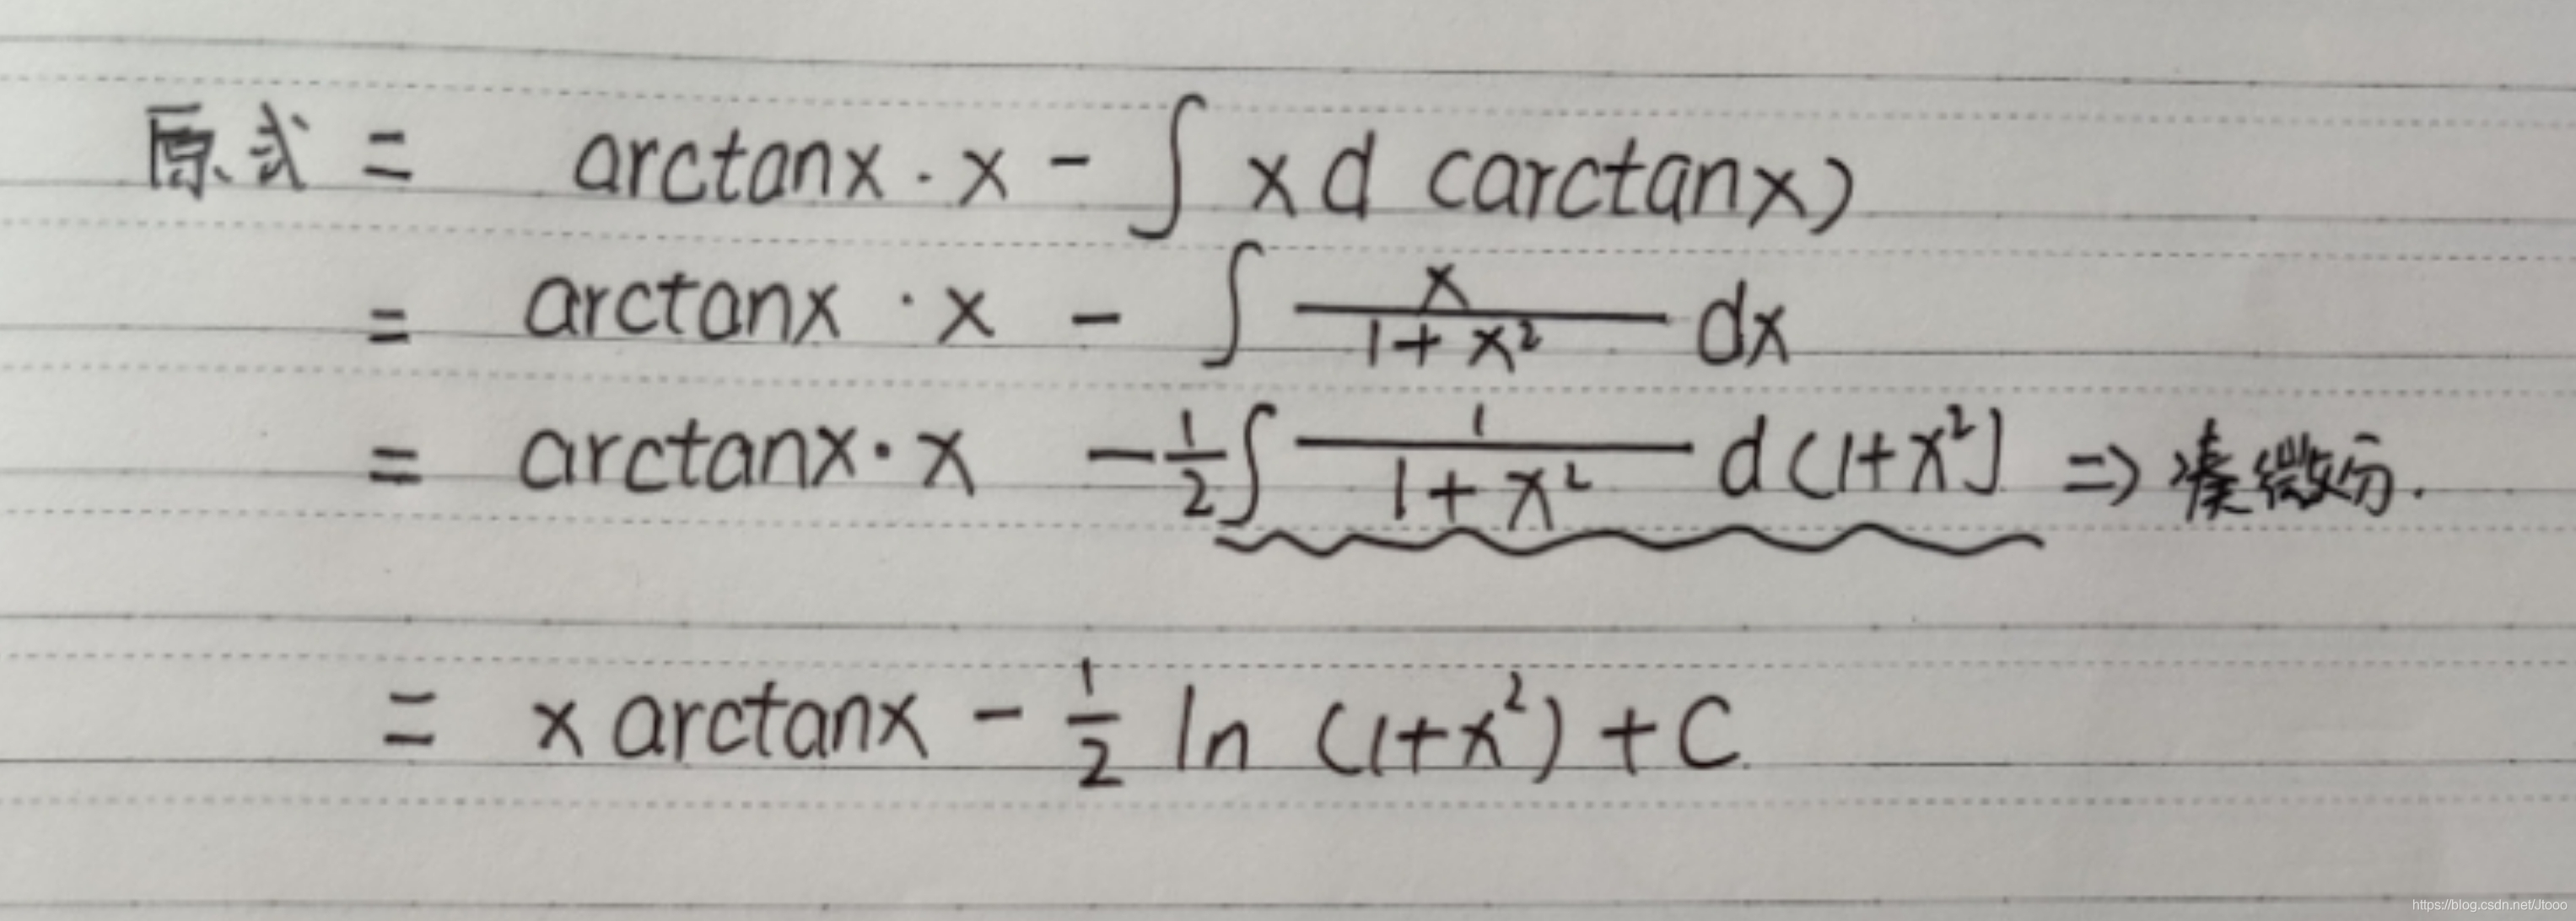 原式 = arctanx · x - ∫ x d (arctanx)
= arctanx · x - ∫ x/(1+x²) dx
= arctanx · x - 1/2 ∫ 1/(1+x²) d(1+x²) => 凑微分.
= x arctanx - 1/2 ln (1+x²) + C.
https://blog.csdn.net/Jtooo